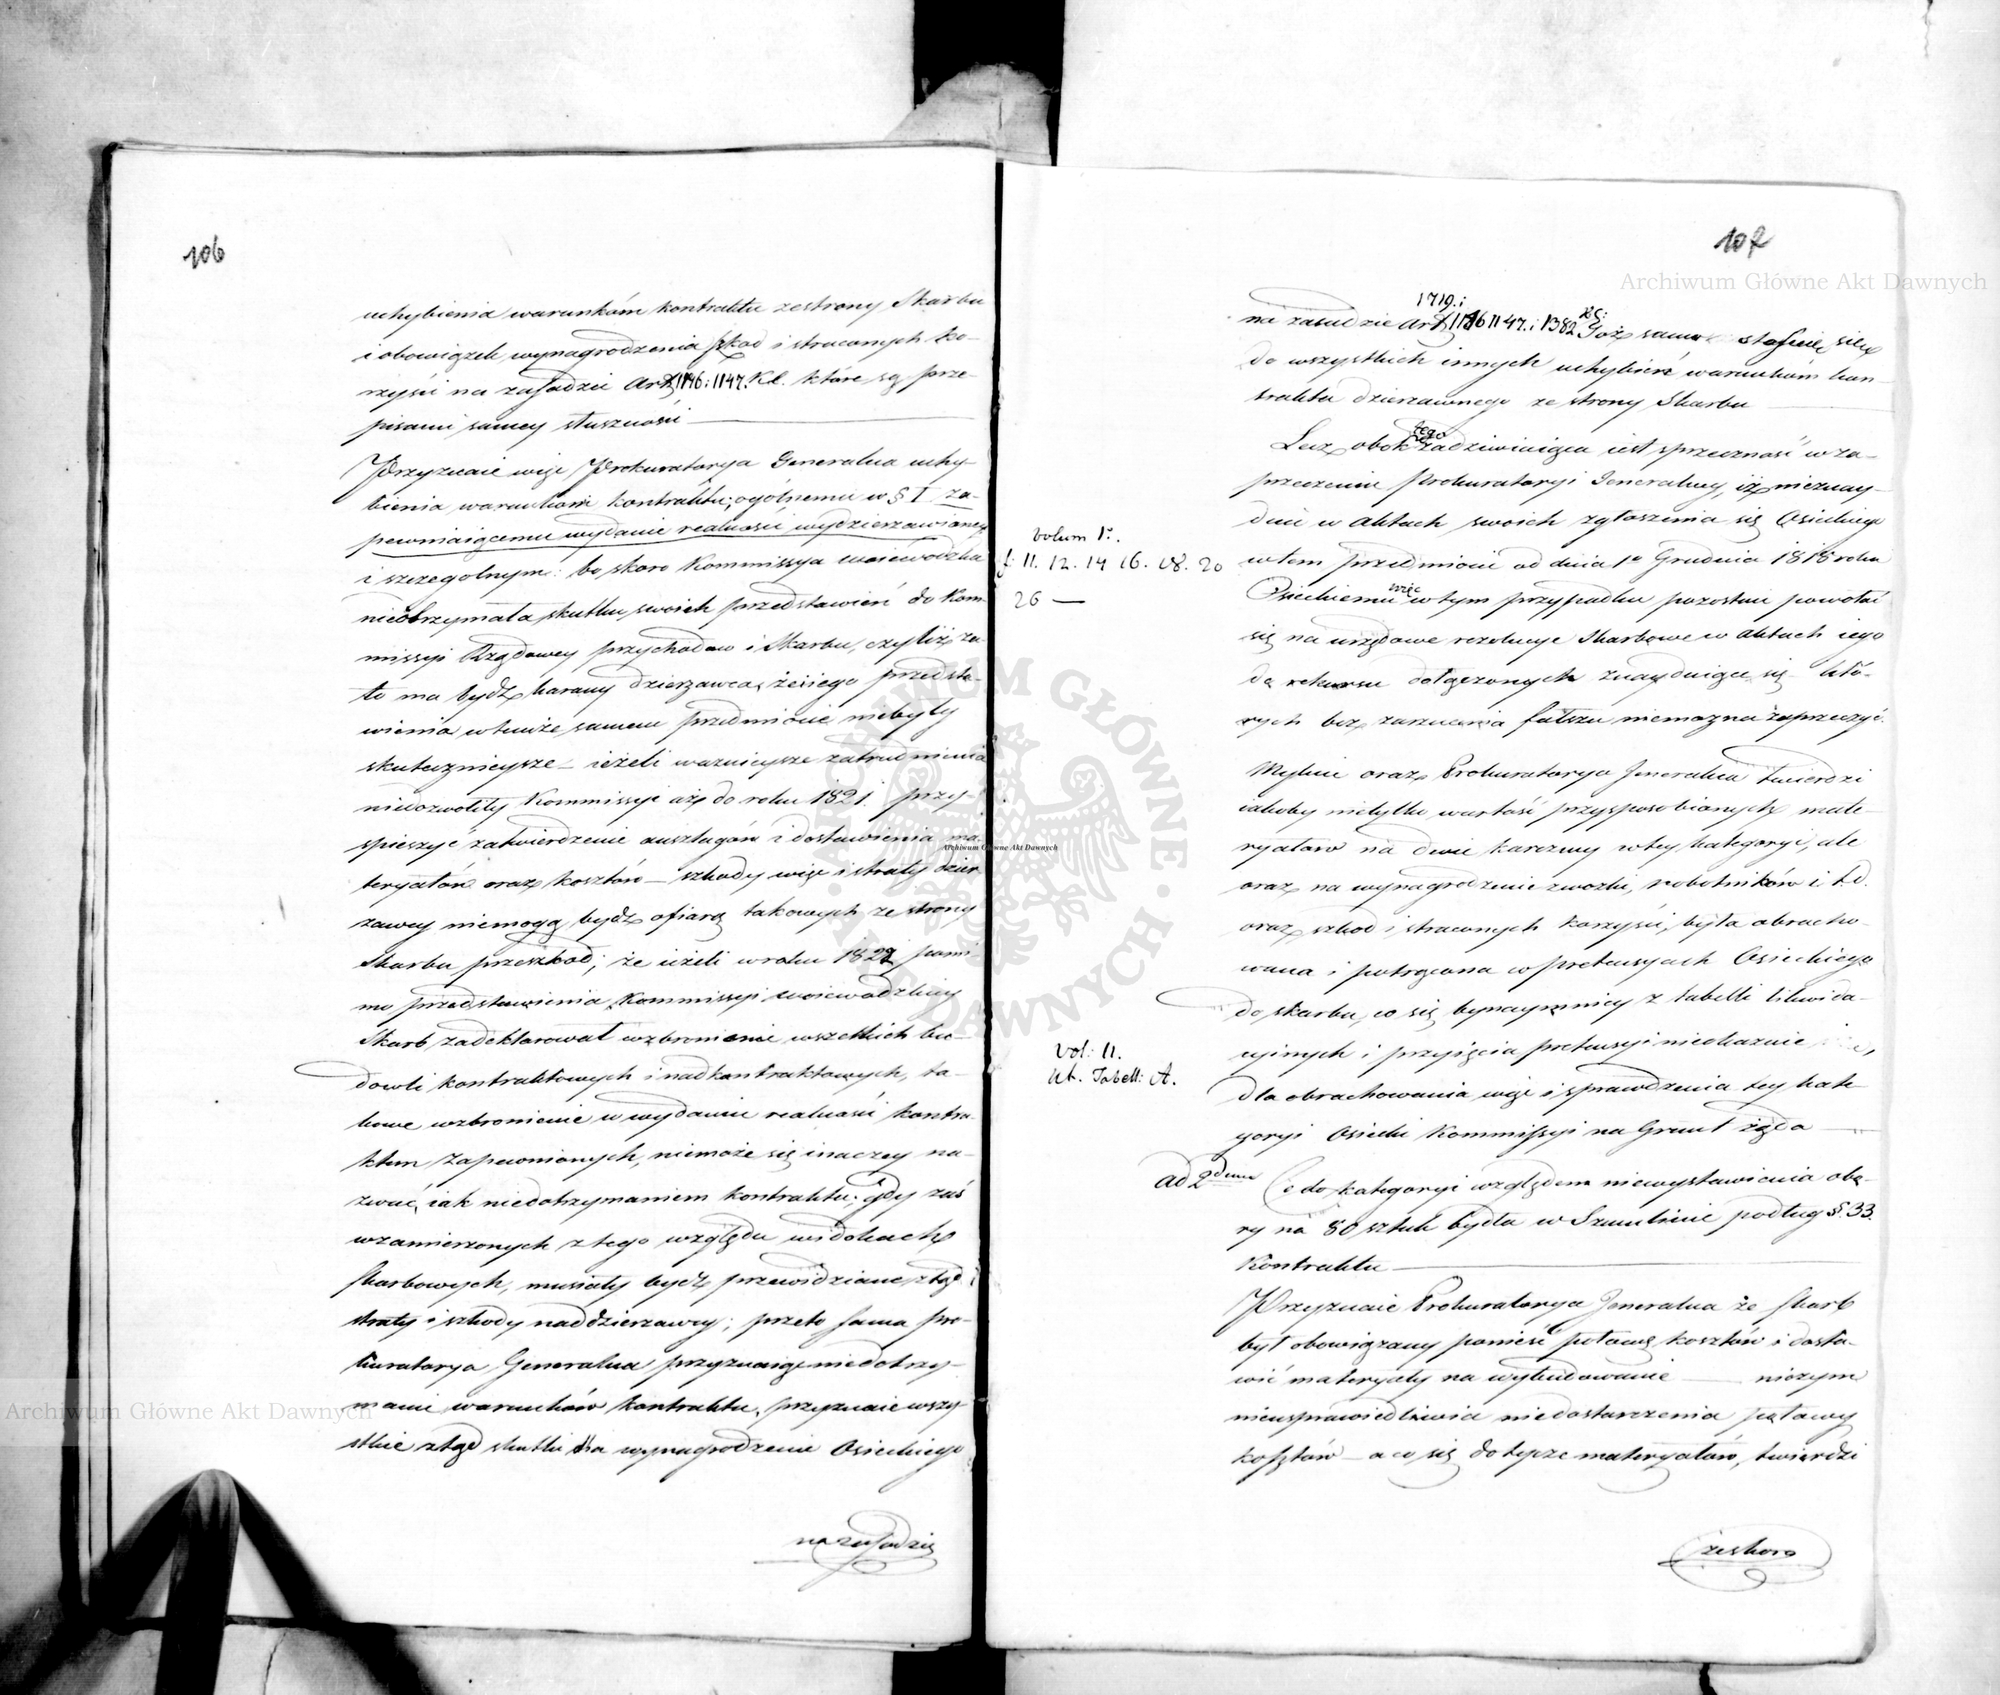 106
uchybienia warunkom kontraktu zestrony Skarbu
i obowiązek wynagrodzenia szkod i straconych ko-
rzyści na zasadzie Art 1146 i 1147. K.C. które są prze-
pisami samey słuszności
Przyznaie więc Prokuratorya Generalna uchy-
bienia warunkom kontraktu; ogólnemu w § I za-
pewniaiącemu wydanie realności wydzierzawioney
i szczegolnym: bo skoro Kommissya woiewodzka
nieotrzymała skutku swoich przedstawień do Kom-
missyi Rządowey przychodow i Skarbu, czyliż za
to ma bydź karany dzierzawca, że iego przedsta-
wienia w temże samem przedmiocie niebyły
skutecznieysze – ieżeli waznieysze zatrudnienia
niedozwoliły Kommissyi aż do roku 1821. przy-
spieszyć zatwierdzenie anszlagów i dostawienia ma-
teryałów oraz kosztów – szkody więc i straty dzier
zawcy niemogą bydź ofiarą takowych ze strony
Skarbu przeszkod; że ieżeli w roku 1822 pomi
mo przedstawienia Kommissyi woiewodzkiey
Skarb zadeklarował wzbronienie wszelkich bu-
dowli kontraktowych i nadkontraktowych, ta-
kowe wzbronienie w wydaniu realności kontra-
ktem zapewnionych, niemoże się inaczey na-
zwać, iak niedotrzymaniem kontraktu; gdy zaś
w zamierzonych z tego względu widokach
Skarbowych, musiały bydź przewidziane ztąd
straty i szkody naddzierzawcy; przeto sama Pro-
kuratorya Generalna przyznaiąc niedotrzy-
manie warunków kontraktu, przyznaie wszy-
stkie ztąd skutki dla wynagrodzenia Osieckiego
na zasadzie
107
1719. i
na zasadzie Art 1146 1147. i 1382 KC: Toż samo stosuie się
do wszystkich innych uchybień warunkom kon-
traktu dzierzawnego ze strony Skarbu
Lecz obok tego zadziwiaiąca iest sprzeczność w za-
przeczeniu Prokuratoryi Generalney, iż nieznay-
duie w Aktach swoich zgłoszenia się Osieckiego
volum 1o.
f: 11. 12. 14 16. 18. 20
26 —
w tem przedmiocie od dnia 1o Grudnia 1818 roku
Osieckiemu więc w tym przypadku pozostaie powołać
się na urzędowe rezolucye Skarbowe w Aktach iego
do rekursu dołączonych znayduiące się któ-
rych bez zarzucenia fałszu niemozna zaprzeczyć.
Mylnie oraz Prokuratorya Jeneralna twierdzi
iakoby nietylko wartość przysposobianych mate-
ryałow na dwie karczmy w tey kategoryi, ale
oraz na wynagrodzenie zwozki, robotników i t.d.
oraz szkod i straconych korzyści, była obracho-
wana i potrącona w pretensyach Osieckiego
do skarbu, co się bynaymniey z tabelli likwida-
Vol: II.
lit. Tabell: A.
cyinych i przyięcia pretensyi nieokazuie
dla obrachowania więc i sprawdzenia tey kate
goryi Osiecki Kommissyi na Grunt żąda
ad 2dum Co do kategoryi względem niewystawienia obo-
ry na 80 sztuk bydła w Szmulinie podług §. 33.
Kontraktu
Przyznaie Prokuratorya Jeneralna że Skarb
był obowiązany ponieść połowę kosztów i dosta-
wić materyały na wybudowanie — niczym
nieusprawiedliwia niedostarczenia połowy
kosztów – a co się dotycze materyałów, twierdzi
ze skoro
Archiwum Główne Akt Dawnych
Archiwum Główne Akt Dawnych
Archiwum Główne Akt Dawnych
ARCHIWUM GŁÓWNE AKT DAWNYCH